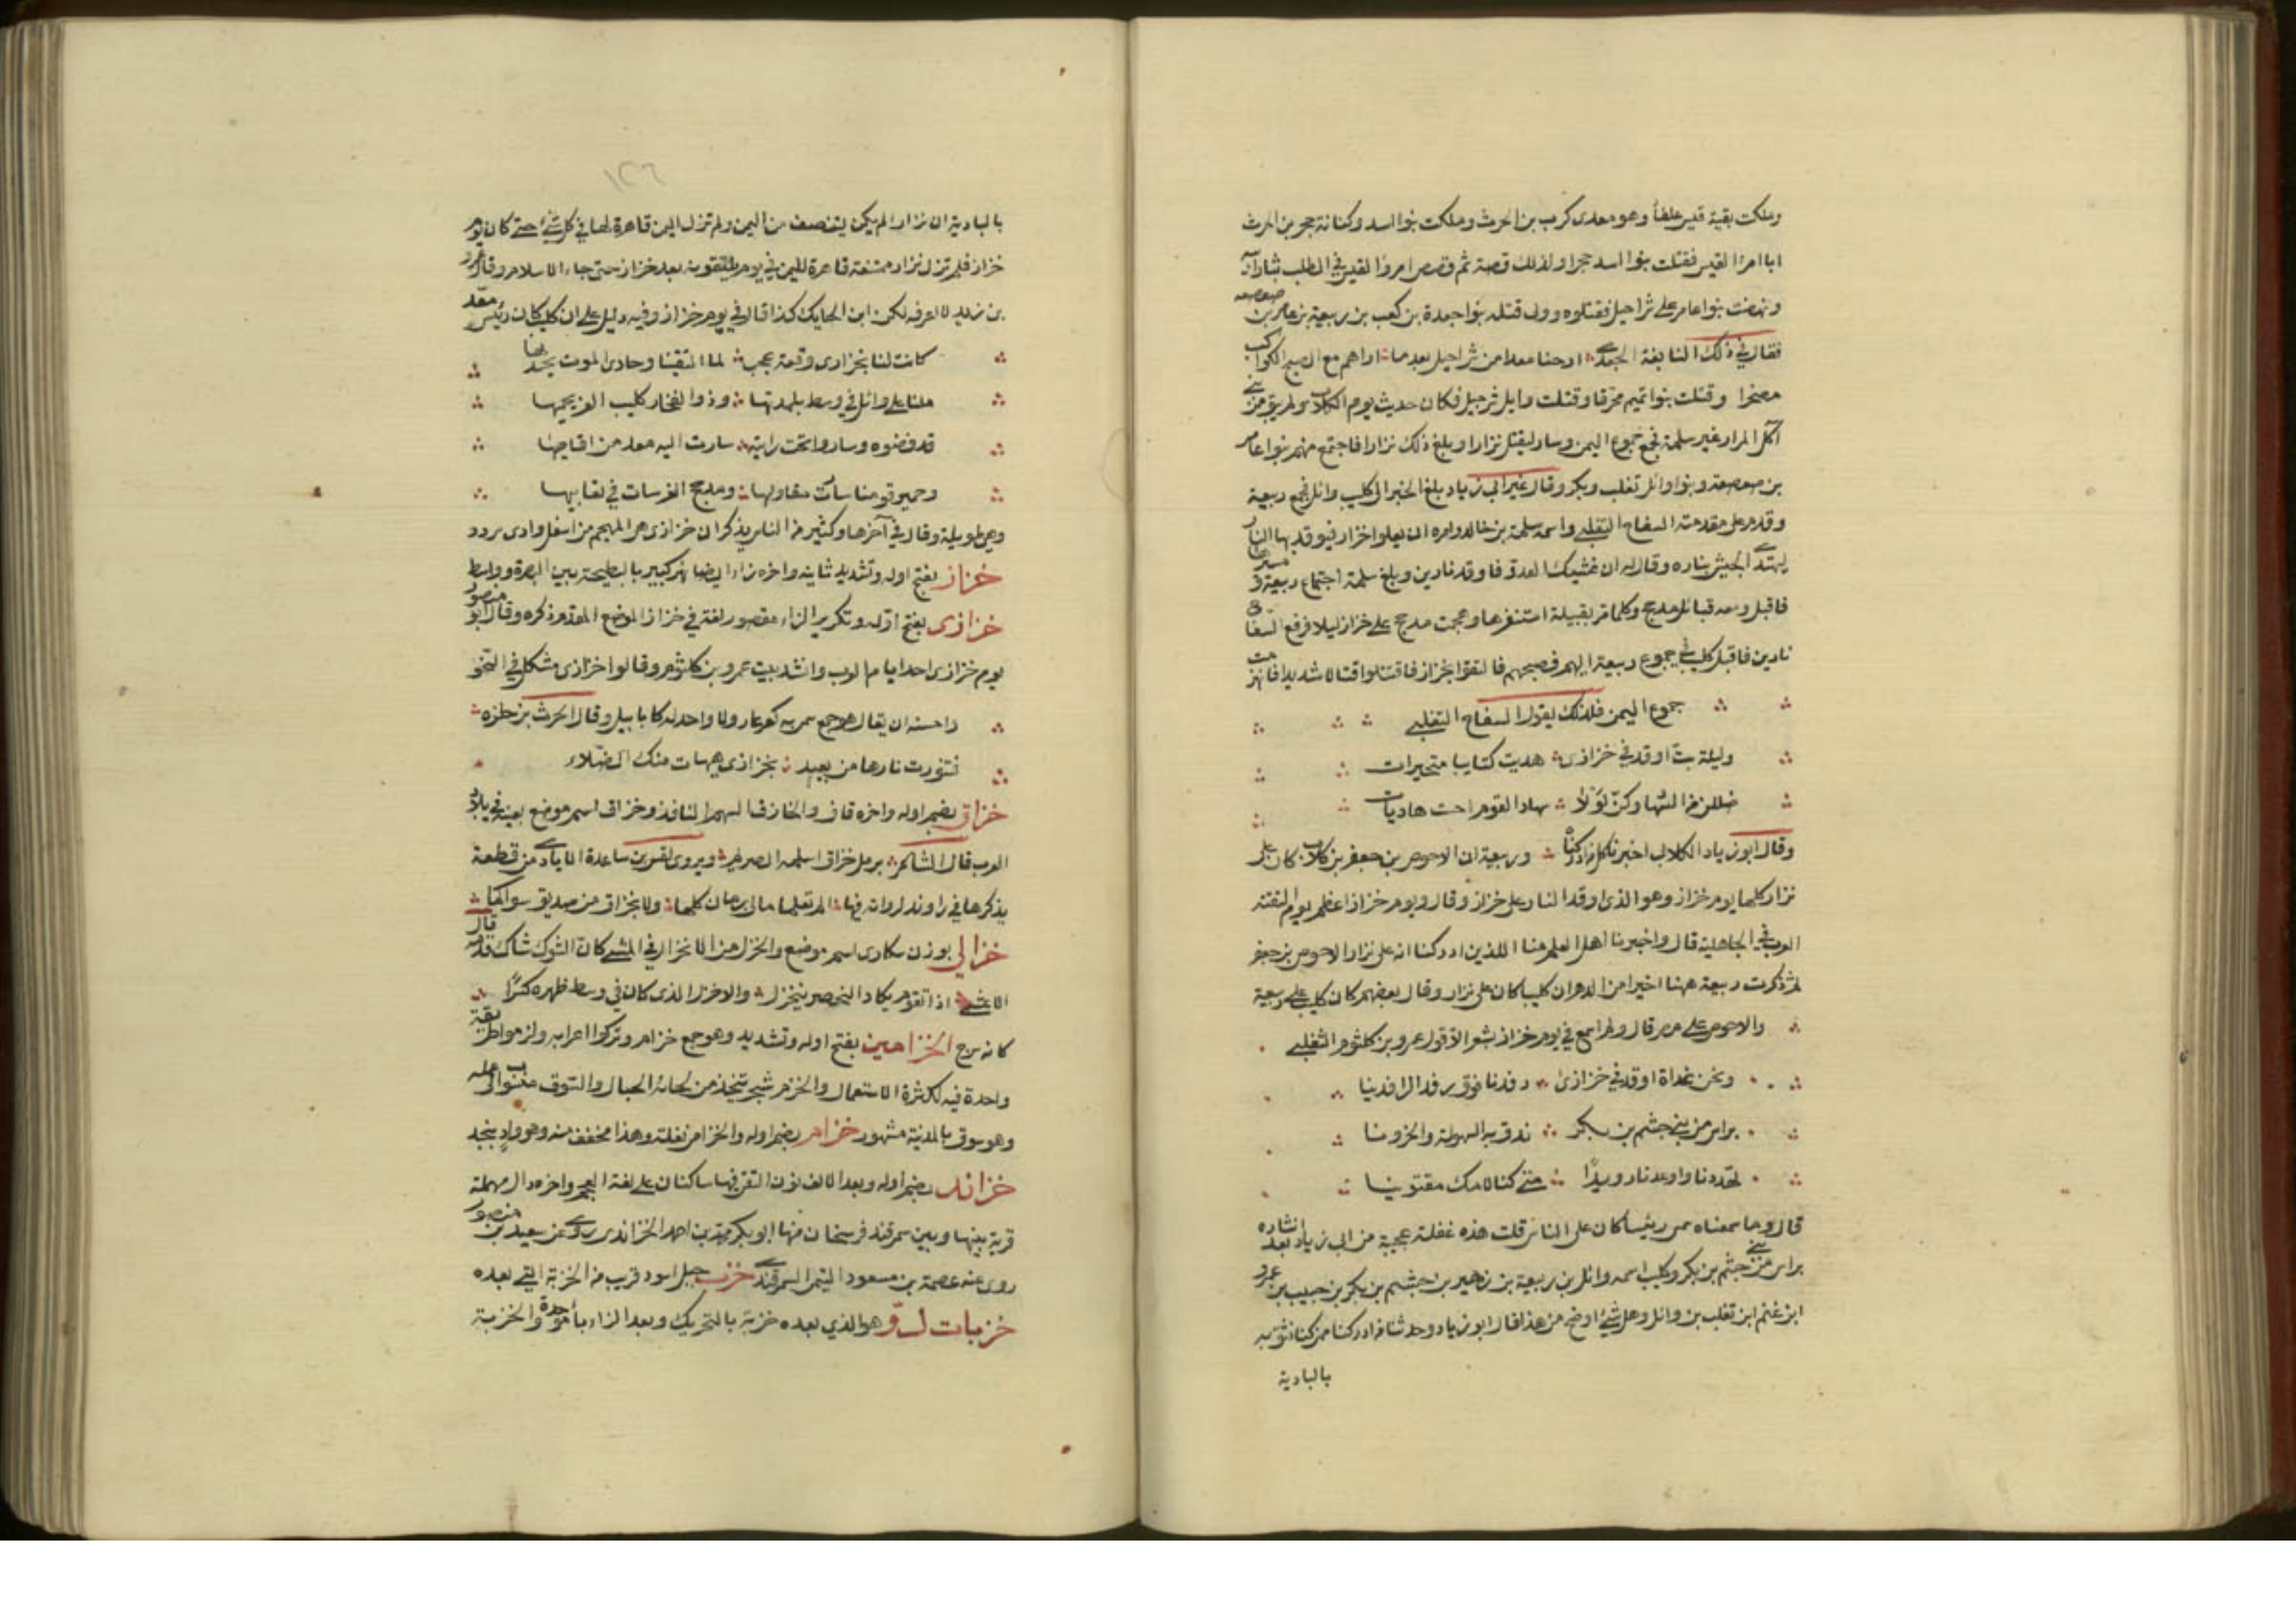 وملكت بقية قيس غلفا وهو معدى كرب بن الحرث وملكت بنوا اسد وكنانة حجر بن الحرث
ابا امرا القيس فقتلت بنوا اسد حجرا ولذلك قصة ثم قصص امروا القيس في الطلب بثار ابيه
ونهضت بنوا عامر على شراحيل فقتلوه وولى قتله بنوا جعدة بن كعب بن ربيعة بن عامر بن صعصعه
فقال في ذلك النابغة الجعدي ارحنا معدا من شراحيل بعد ما اراهم مع الصبح الكواكب
مصحرا وقتلت بنوا تميم محرقا وقتلت وايل شرحبيل فكان حديث يوم الكلاب ولم يبق من بني
آكل المرار غير سلمة فجمع جموع اليمن وسار ليقتل نزارا وبلغ ذلك نزارا فاجتمع منهم بنوا عامر
بن صعصعة وبنوا وائل تغلب وبكر وقال غير ابي زياد بلغ الخبر الى كليب وائل فجمع ربيعة
وقدم على مقدمته السفاح التغلبي واسمه سلمة بن خالد وامره ان يعلوا خزاز فيوقد بها النار
ليهتدي الجيش بناره وقال له ان غشيك العدو فاوقد نارين وبلغ سلمة اجتماع ربيعة ومسيرها
فاقبل ومعه قبائل مذحج وكلما مر بقبيلة استنفرها وهجمت مذحج على خزاز ليلا فرفع السفاح
نارين فاقبل كليب في جموع ربيعة اليهم فصبحهم فالتقوا بخزاز فاقتتلوا قتالا شديدا فانهزمت
جموع اليمن فلذلك يقول السفاح التغلبي
وليلة بت اوقد في خزازى هديت كتايبا متحيرات
ضللن من السهاد وكن لولا سهاد القوم احسب هاديات
وقال ابو زياد الكلابي اخبرنا من ادركناه وربيعة ان الاحوص بن جعفر بن كلاب كان على
نزار كلها يوم خزاز وهو الذي اوقد النار على خزاز وقال ويوم خزاز اعظم يوم التقته
العرب في الجاهلية قال واخبرنا اهل العلم منا الذين ادركنا انه على نزار الاحوص بن جعفر
ثم ذكرت ربيعة ههنا اخيرا من الدهر ان كليبا كان على نزار وقال بعضهم كان كليب على ربيعة
والاحوص على مضر قال ولم اسمع في يوم خزاز بشعر الا قول عمرو بن كلثوم التغلبي
ونحن غداة اوقد في خزازى رفدنا فوق رفد الرافدينا
براس من بني جشم بن بكر ندق به السهولة والحزونا
تهددنا واوعدنا رويدا متى كنا لامك مقتوينا
قال وما سمعناه سمى رئيسا كان على الناس قلت هذه غفلة عجيبة من ابي زياد بعد انشاده
براس من بني جشم بن بكر وكليب اسمه وائل بن ربيعة بن زهير بن جشم بن بكر بن حبيب بن عمرو
ابن غنم ابن تغلب بن وائل وهل شئ اوضح من هذا قال ابو زياد وحدثنا من ادركنا ممن كنا نثق به
بالبادية
١٢٦
بالبادية ان نزارا لم يكن يستنصف من اليمن ولم تزل اليمن قاهرة لها في كل شئ حتى كان يوم
خزاز فلم تزل نزار ممتنعة قاهرة لليمن في يوم يلتقونه بعد خزاز حتى جاء الاسلام وقال عمرو
بن زيد لا اعرفه لكن ابن الحايك كذا قال في يوم خزاز وفيه دليل على ان كليبا كان رئيس معد
كانت لنا بخزازى وقعة عجب لما التقينا وحادى الموت يحديها
ملنا على وائل في وسط بلدتها وذو الفخار كليب العز يحميها
قد فوضوه وساروا تحت رايته سارت اليه معد من اقاصيها
وحمير قومنا سارت مقاولها ومذحج الغر سارت في تعابيها
وهي طويلة وقال في آخرها وكثير من الناس يذكر ان خزازى هي المهجم من اسفل وادى سردد
خزاز بفتح اوله وتشديد ثانيه واخره زاء ايضا نهر كبير بالبطيحة بين البصرة وواسط
خزازى بفتح اوله وتكرير الزاء مقصور لغة في خزاز الموضع المقدم ذكره وقال ابو منصور
يوم خزازى احد ايام العرب وانشد بيت عمرو بن كلثوم وقالوا خزازى مشكل في النحو
واحسنه ان يقال هو جمع سمى به كعراعر ولا واحد له كابابيل وقال الحرث بن حلزه
فتنورت نارها من بعيد بخزازى هيهات منك الصلاء
خزاق بضم اوله واخره قاف والخازق السهم النافذ وخزاق اسم موضع بعينه في بلاد
العرب قال الشاعر برمل خزاق اسلمه الصريم ويروى لقس بن ساعدة الايادي من قطعة
يذكرها في راوند الم تعلما مالى براوند كلها ولا بخزاق من صديق سواكما
خزالى بوزن سكارى اسم موضع والخزل من الانخزال في المشي كان الشوك شاك قدمه قال
الاعشى اذا تقوم يكاد الخصر ينخزل والاخزل الذي كان في وسط ظهره كسرا
كانه سرج الخزامين بفتح اوله وتشديد وهو جمع خزام وتركوا اعرابه ولزموا طريقة
واحدة فيه لكثرة الاستعمال والخزم شجر يتخذ من لحائه الحبال والسوق منسوب الى عمله
وهو سوق بالمدينة مشهور خزام بضم اوله والخزام نغلة وهذا مخفف منه وهو واد بنجد
خزاند بضم اوله وبعد الالف نون التقى فيها ساكنان على لغة العجم واخره دال مهملة
قرية بينها وبين سمرقند فرسخان منها ابو بكر محمد بن احمد الخزاندي يروى عن سعيد بن منصور
روى عنه عصمة بن مسعود التيمي السمرقندي خزب جبل اسود قريب من الخزبة التي بعده
خزبات دو هو الذي بعده خزبة بالتحريك وبعد الزاء باء موحدة والخزبة